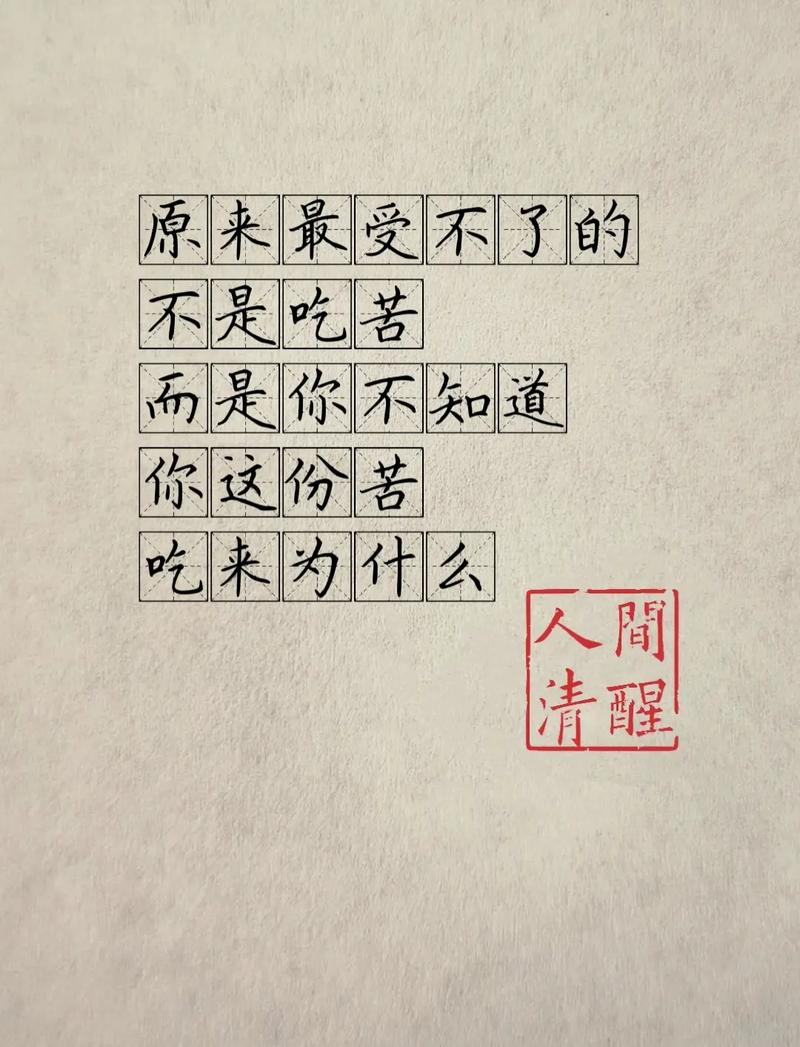 原来最受不了的
不是吃苦
而是你不知道
你这份苦
吃来为什么
人間
清醒